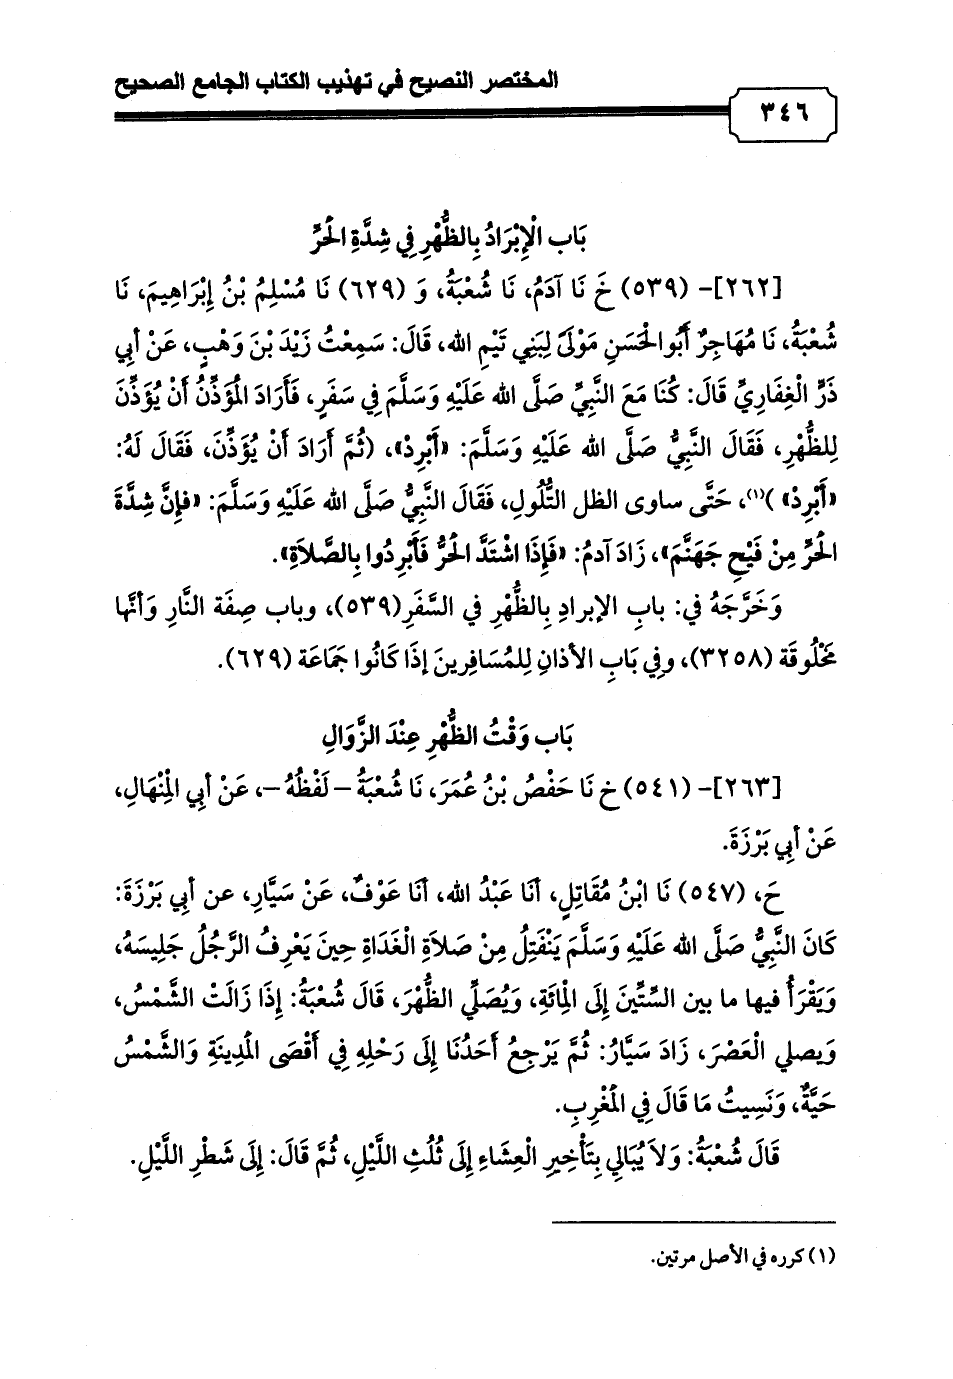 المختصر النصيح في تهذيب الكتاب الجامع الصحيح
٣٤٦
بَاب الْإِبْرَادُ بِالظُّهْرِ فِي شِدَّةِ الْحَرِّ
[٢٦٢]- (٥٣٩) خَ نَا آدَمُ، نَا شُعْبَةُ، وَ (٦٢٩) نَا مُسْلِمُ بْنُ إِبْرَاهِيمَ، نَا
شُعْبَةُ، نَا مُهَاجِرٌ أَبُوالْحَسَنِ مَوْلَىً لِبَنِي تَيْمِ الله، قَالَ: سَمِعْتُ زَيْدَ بْنَ وَهْبٍ، عَنْ أبِي
ذَرٍّ الْغِفَارِيِّ قَالَ: كُنَا مَعَ النَّبِيِّ صَلَّى الله عَلَيْهِ وَسَلَّمَ فِي سَفَرٍ، فَأَرَادَ الْمُؤَذِّنُ أَنْ يُؤَذِّنَ
لِلظُّهْرِ، فَقَالَ النَّبِيُّ صَلَّى الله عَلَيْهِ وَسَلَّمَ: «أَبْرِدْ»، (ثُمَّ أَرَادَ أَنْ يُؤَذِّنَ، فَقَالَ لَهُ:
«أَبْرِدْ» )(١)، حَتَّى ساوى الظل التُّلُولِ، فَقَالَ النَّبِيُّ صَلَّى الله عَلَيْهِ وَسَلَّمَ: «فإِنَّ شِدَّةَ
الْحَرِّ مِنْ فَيْحِ جَهَنَّمَ»، زَادَ آدمُ: «فَإِذَا اشْتَدَّ الْحَرُّ فَأَبْرِدُوا بِالصَّلاَةِ».
وَخَرَّجَهُ في: بابِ الإبرادِ بِالظُّهْرِ في السَّفَرِ(٥٣٩)، وباب صِفَة النَّارِ وَأنَّها
مَخْلُوقَة (٣٢٥٨)، وفِي بَابِ الأذانِ لِلمُسَافِرينَ إذَا كَانُوا جَمَاعَة (٦٢٩).
بَاب وَقْتُ الظُّهْرِ عِنْدَ الزَّوَالِ
[٢٦٣]- (٥٤١) خ نَا حَفْصُ بْنُ عُمَرَ، نَا شُعْبَةُ – لَفْظُهُ –، عَنْ أبِي الْمِنْهَالِ،
عَنْ أبِي بَرْزَةَ.
حَ، (٥٤٧) نَا ابْنُ مُقَاتِلٍ، أَنَا عَبْدُ الله، أَنَا عَوْفٌ، عَنْ سَيَّارٍ، عن أبِي بَرْزَةَ:
كَانَ النَّبِيُّ صَلَّى الله عَلَيْهِ وَسَلَّمَ يَنْفَتِلُ مِنْ صَلاَةِ الْغَدَاةِ حِينَ يَعْرِفُ الرَّجُلُ جَلِيسَهُ،
وَيَقْرَأُ فيها ما بين السِّتِّينَ إِلَى الْمِائَةِ، وَيُصَلِّي الظُّهْرَ، قَالَ شُعْبَةُ: إِذَا زَالَتْ الشَّمْسُ،
وَيصلي الْعَصْرَ، زَادَ سَيَّارُ: ثُمَّ يَرْجِعُ أَحَدُنَا إِلَى رَحْلِهِ فِي أَقْصَى الْمَدِينَةِ وَالشَّمْسُ
حَيَّةٌ، وَنَسِيتُ مَا قَالَ فِي الْمَغْرِبِ.
قَالَ شُعْبَةُ: وَلاَ يُبَالِي بِتَأْخِيرِ الْعِشَاءِ إِلَى ثُلُثِ اللَّيْلِ، ثُمَّ قَالَ: إِلَى شَطْرِ اللَّيْلِ.
(١) كرره في الأصل مرتين.